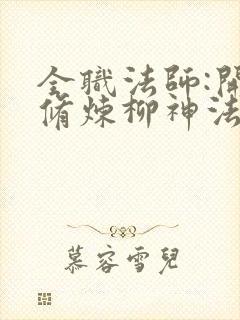 全職法師:開
脩煉柳神法
慕容雪兒